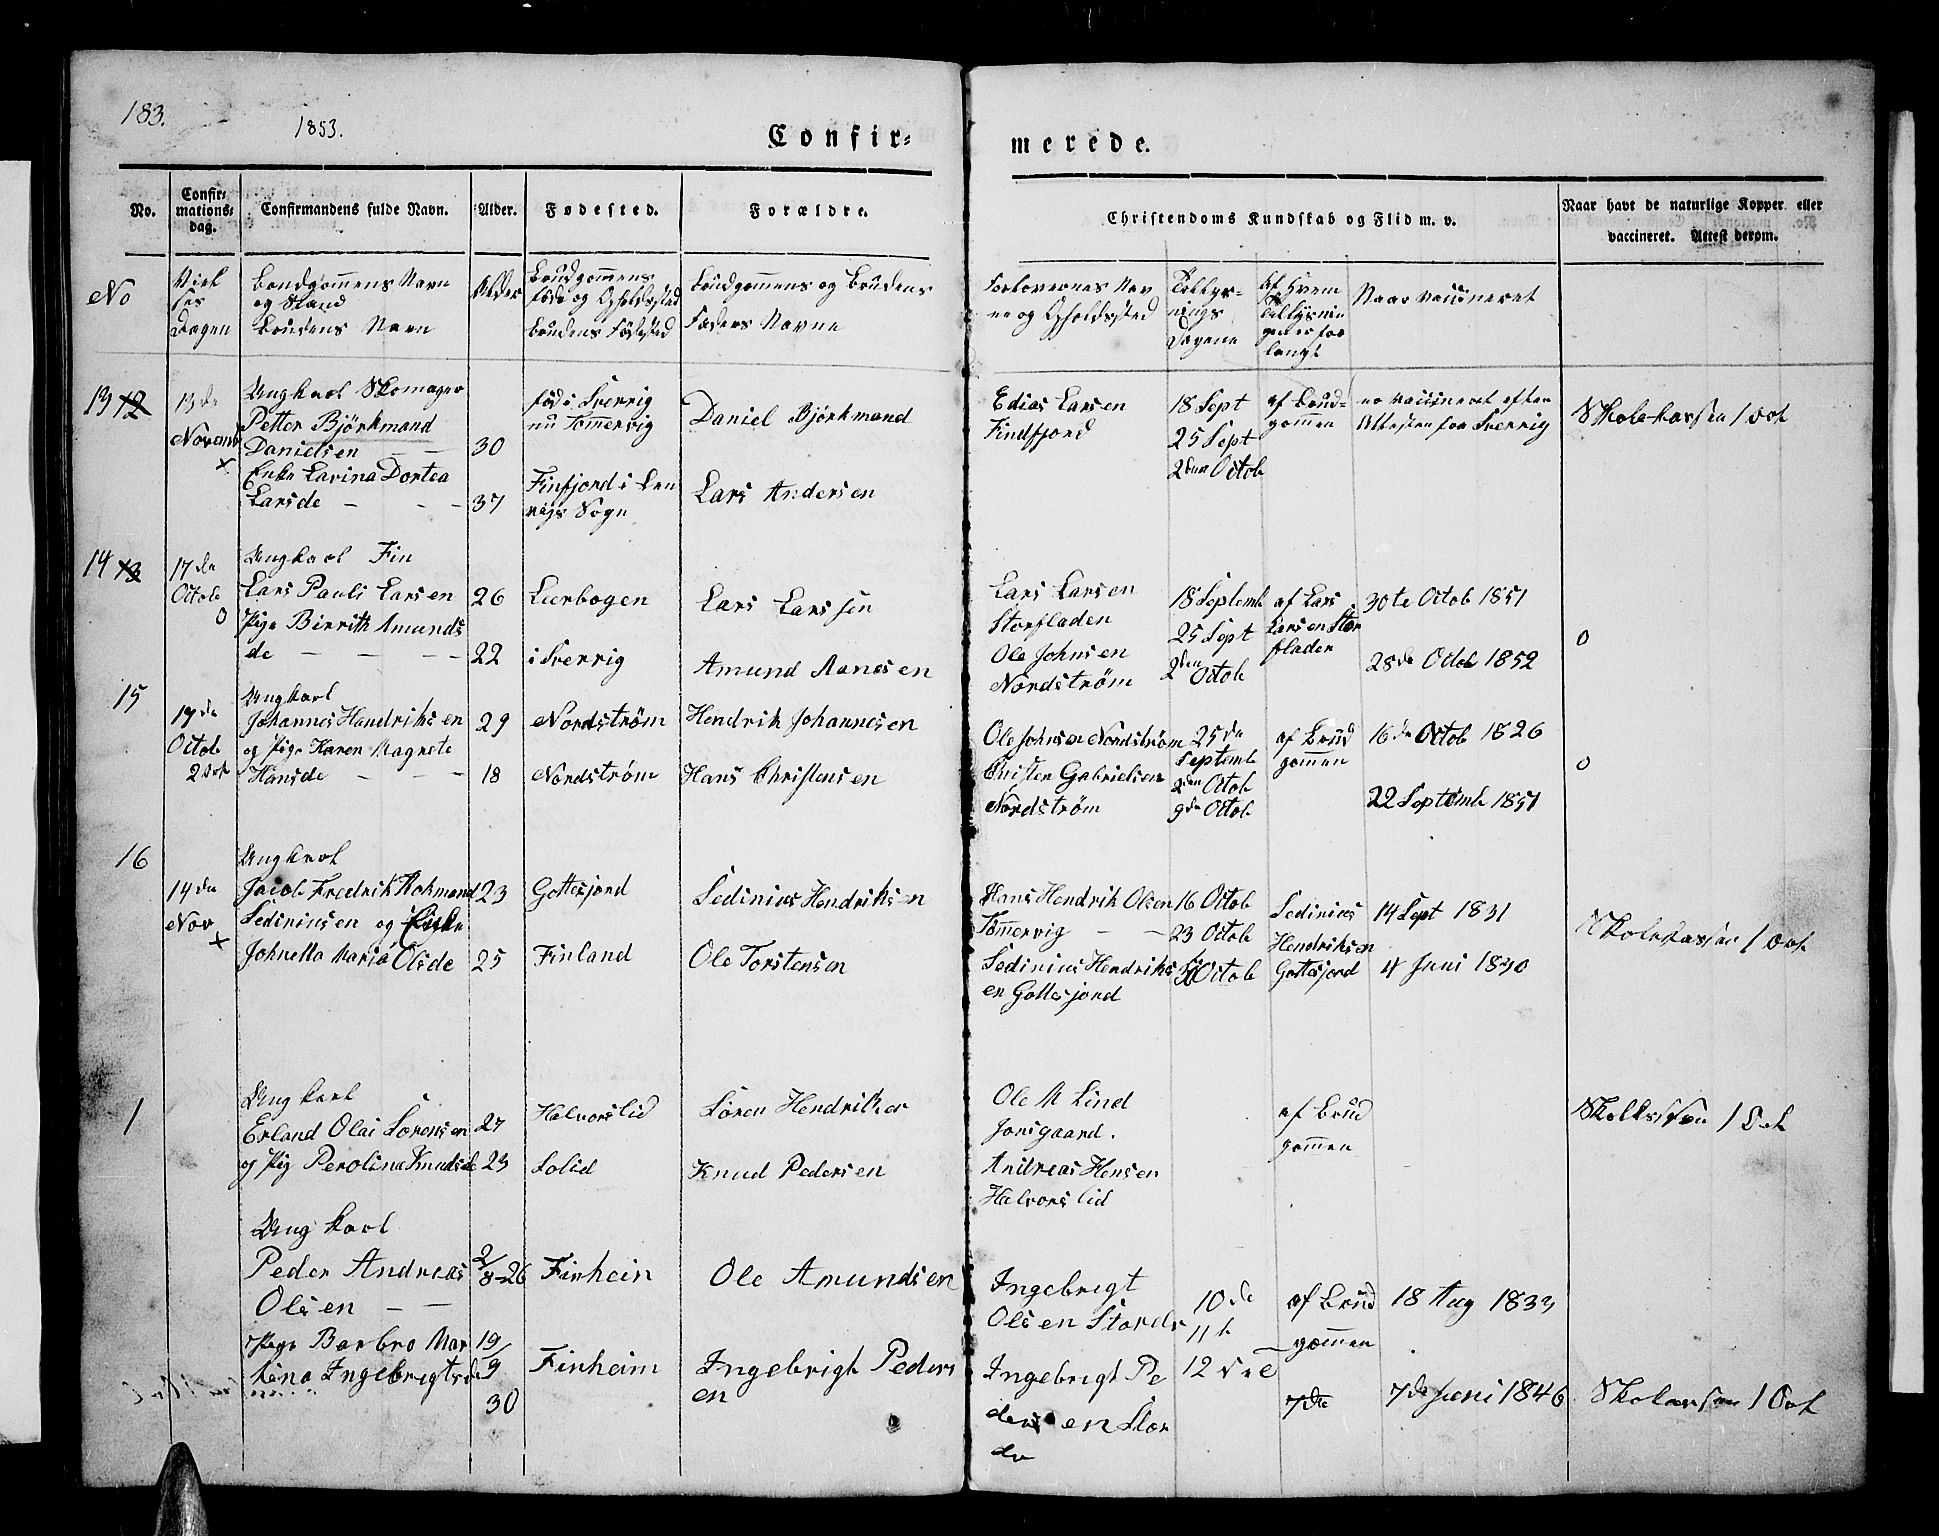 183.
1853.
Confir-
merede.
No.
Confir-
mations-
dag.
Confirmandens fulde Navn.
Alder.
Fødested.
Forældre.
Christendoms Kundskab og Flid m. v.
Naar havt de naturlige Kopper eller
vaccineret. Attest derom.
No
Viel
ses
Dagen
Brudgommens Navn
og Stand
Brudens Navn
Alder
Brudgommens
føde og Opholdssted
Brudens Fødested
Brudgommens og Brudens
Faders Navne
Forlovernes Nav
ne og Opholdssted
Tillys-
nings
Dagene
af Hvem
billysnin
gen er for
langt
Naar vaccineret
13 12
13de
Novemb
x
Ungkarl Skomager
Petter Björkmand
Danielsen — —
30
Enke Larina Dortea
Larsde — — —
37
fød i Sverrig
nu Tømmervig
Finfjord i Len
vigs Sogn
Daniel Björkmand
Lars Andersen
Edias Larsen
Findfjord
18 Sept
25 Sept
2den Octob
af Brud-
gommen
er vaccineret efter
Attesten fra Sverrig
Skolekassen 1 Ort
14 13
17de
Octob
0
Ungkarl Fin
Lars Pauli Larsen
26
Pige Birrith Amunds
de — — — —
22
Leerbogen
i Sverrig
Lars Larssen
Amund Aanesen
Lars Larsen
Storfladen
Ole Johnsen
Nordstrøm
18 Septemb
25 Sept
2den Octob
af Lars
Larsen Stor
fladen
30te Octob 1851
28de Octob 1852
0
15
17de
Octob
2 Ort
Ungkarl
Johannes Hendriksen
29
og Pige Karen Magrete
Hansde — — —
18
Nordstrøm
Nordstrøm
Hendrik Johannesen
Hans Christensen
Ole Johnsen Nordstrøm
Christen Gabrielsen
Nordstrøm
25de
Septemb
2den Octob
9de Octob
af Brud
gommen
16de Octob 1826
22 Septemb 1851
0
16
14de
Nov
x
Ungkarl
Jacob Fredrik Rokmand
23
Sediniusen og Enke
Johnetta Maria Olsde
25
Gottesjord
Finland
Sedinius Hendriksen
Ole Torstensen
Hans Hendrik Olsen
Tømmervig — —
Sedinius Hendriks
en Gottesjord
16 Octob
23 Octob
Octob
Sedinius
Hendriksen
Gottesjord
14 Sept 1831
4 Juni 1830
Skolekassen 1 Ort
1
Ungkarl
Erland Olai Sørensen
27
og Pig Perolina Knudsde
23
Halvorslid
Solid
Søren Hendriksen
Knud Pedersen
Ole M Lind
Jonsgaard.
Andreas Hensen
Halvorslid
af Brud
gommen
1 Ort
Ung karl
Peder Andreas
2/8-26
Olsen — —
Pige Barbro Mar
19/9
30
tina Ingebrigtsde
Finheim
Finheim
Ole Amundsen
Ingebrigt Peders
en
Ingebrigt
Olsen Stords
Ingebrigt Pe
dersen Stor
ds
10de
11t
12vte
af Brud
gommen
7de
18 Aug 1833
7de Juni 1846
1 Ort